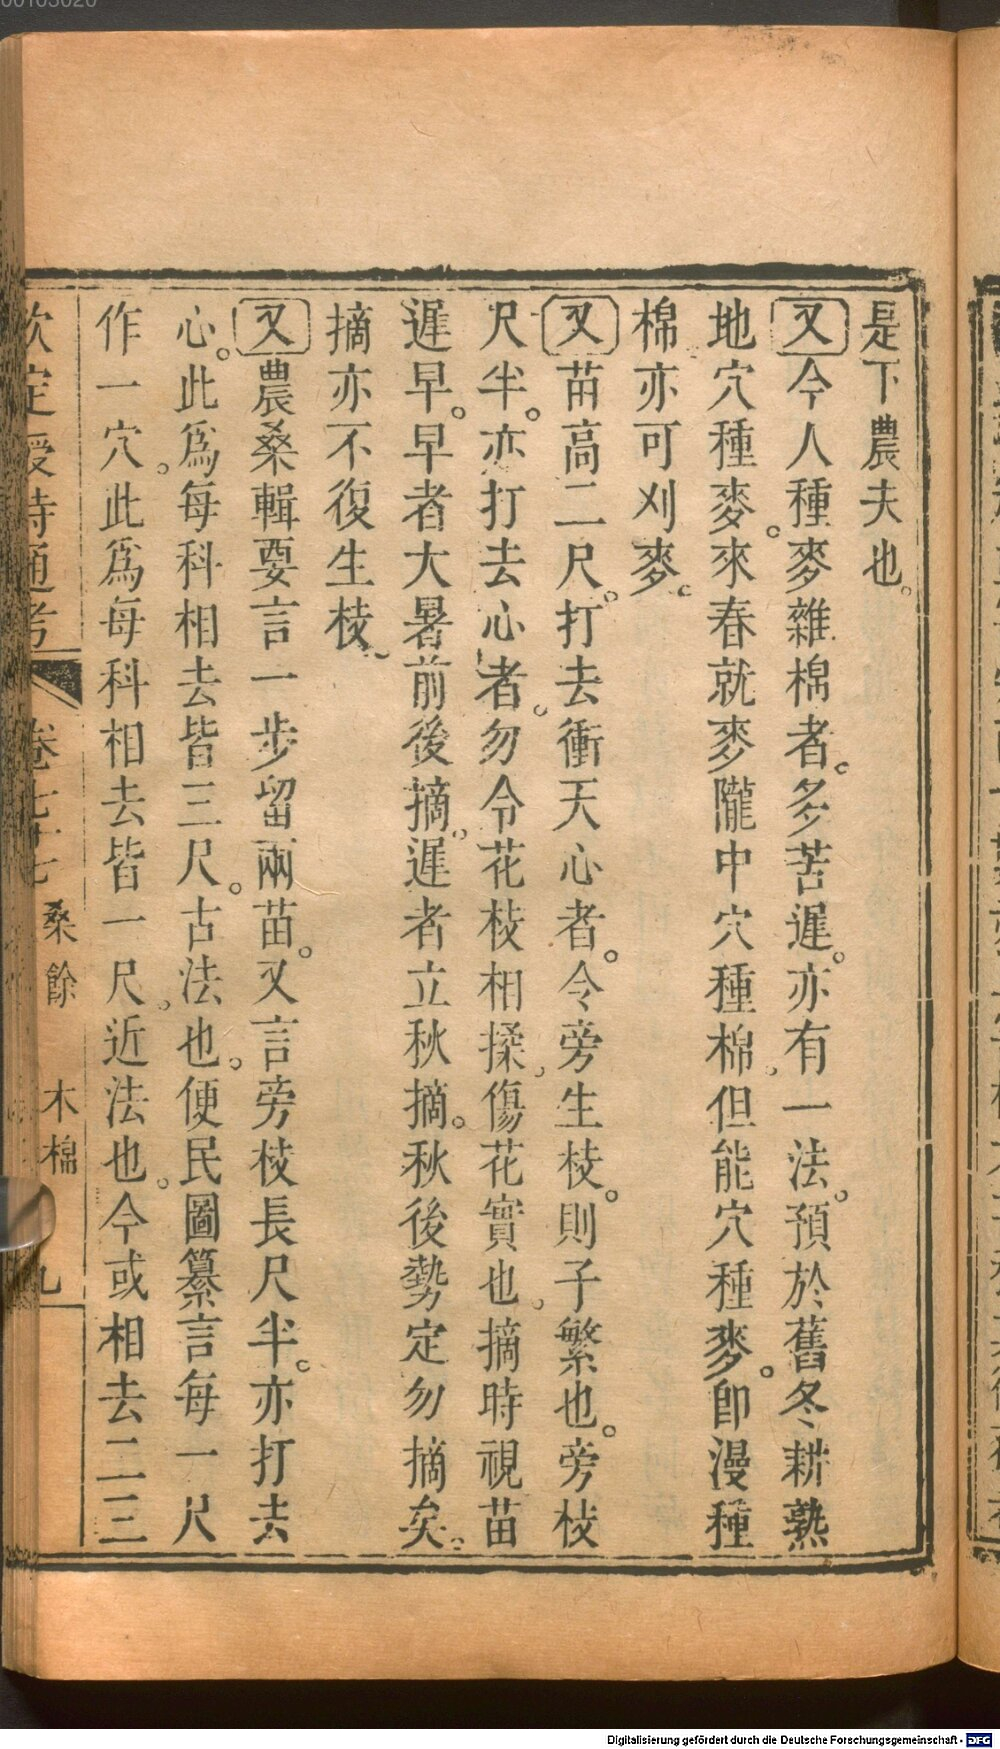 是下農夫也。
又今人種麥雜棉者。多苦遲。亦有一法。預於舊冬耕熟
地穴種麥。來春就麥隴中穴種棉。但能穴種麥。卽漫種
棉亦可刈麥。
又苗高二尺。打去衝天心者。令旁生枝。則子繁也。旁枝
尺半。亦打去心者。勿令花枝相揉。傷花實也。摘時視苗
遲早。早者大暑前後摘。遲者立秋摘。秋後勢定勿摘矣。
摘亦不復生枝。
又農桑輯要言一步留兩苗。又言旁枝長尺半。亦打去
心。此爲每科相去皆三尺。古法也。便民圖纂言每一尺
作一穴。此爲每科相去皆一尺。近法也。今或相去二三
欽定授時通考 卷七十七 桑餘 木棉 九
00103020
Digitalisierung gefördert durch die Deutsche Forschungsgemeinschaft - DFG